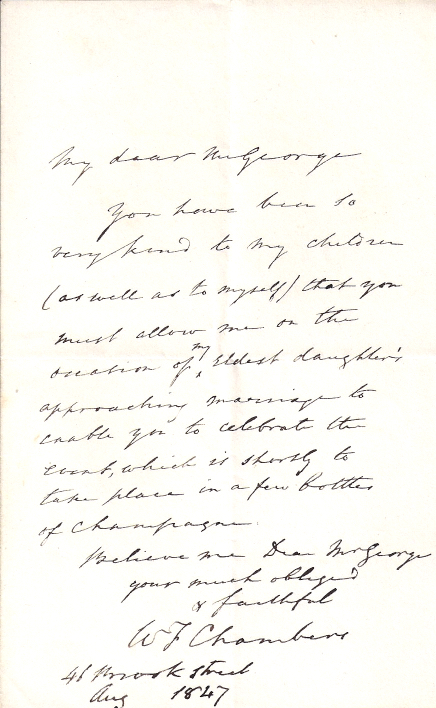 My dear Mr George
You have been so
very kind to my children
(as well as to myself) that you
must allow me on the
occasion of my Eldest daughter's
approaching marriage to
enable you to celebrate the
event, which is shortly to
take place in a few bottles
of Champagne.
Believe me Dear Mr George
your much obliged
& faithful
W F Chambers
46 Brook Street
Aug 1847